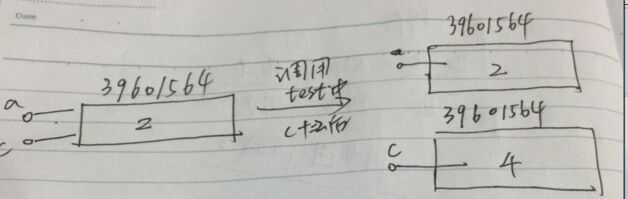 Date
a
c
39601564
2
调用
test中
c+=2后
39601564
a
2
39601564
c
4